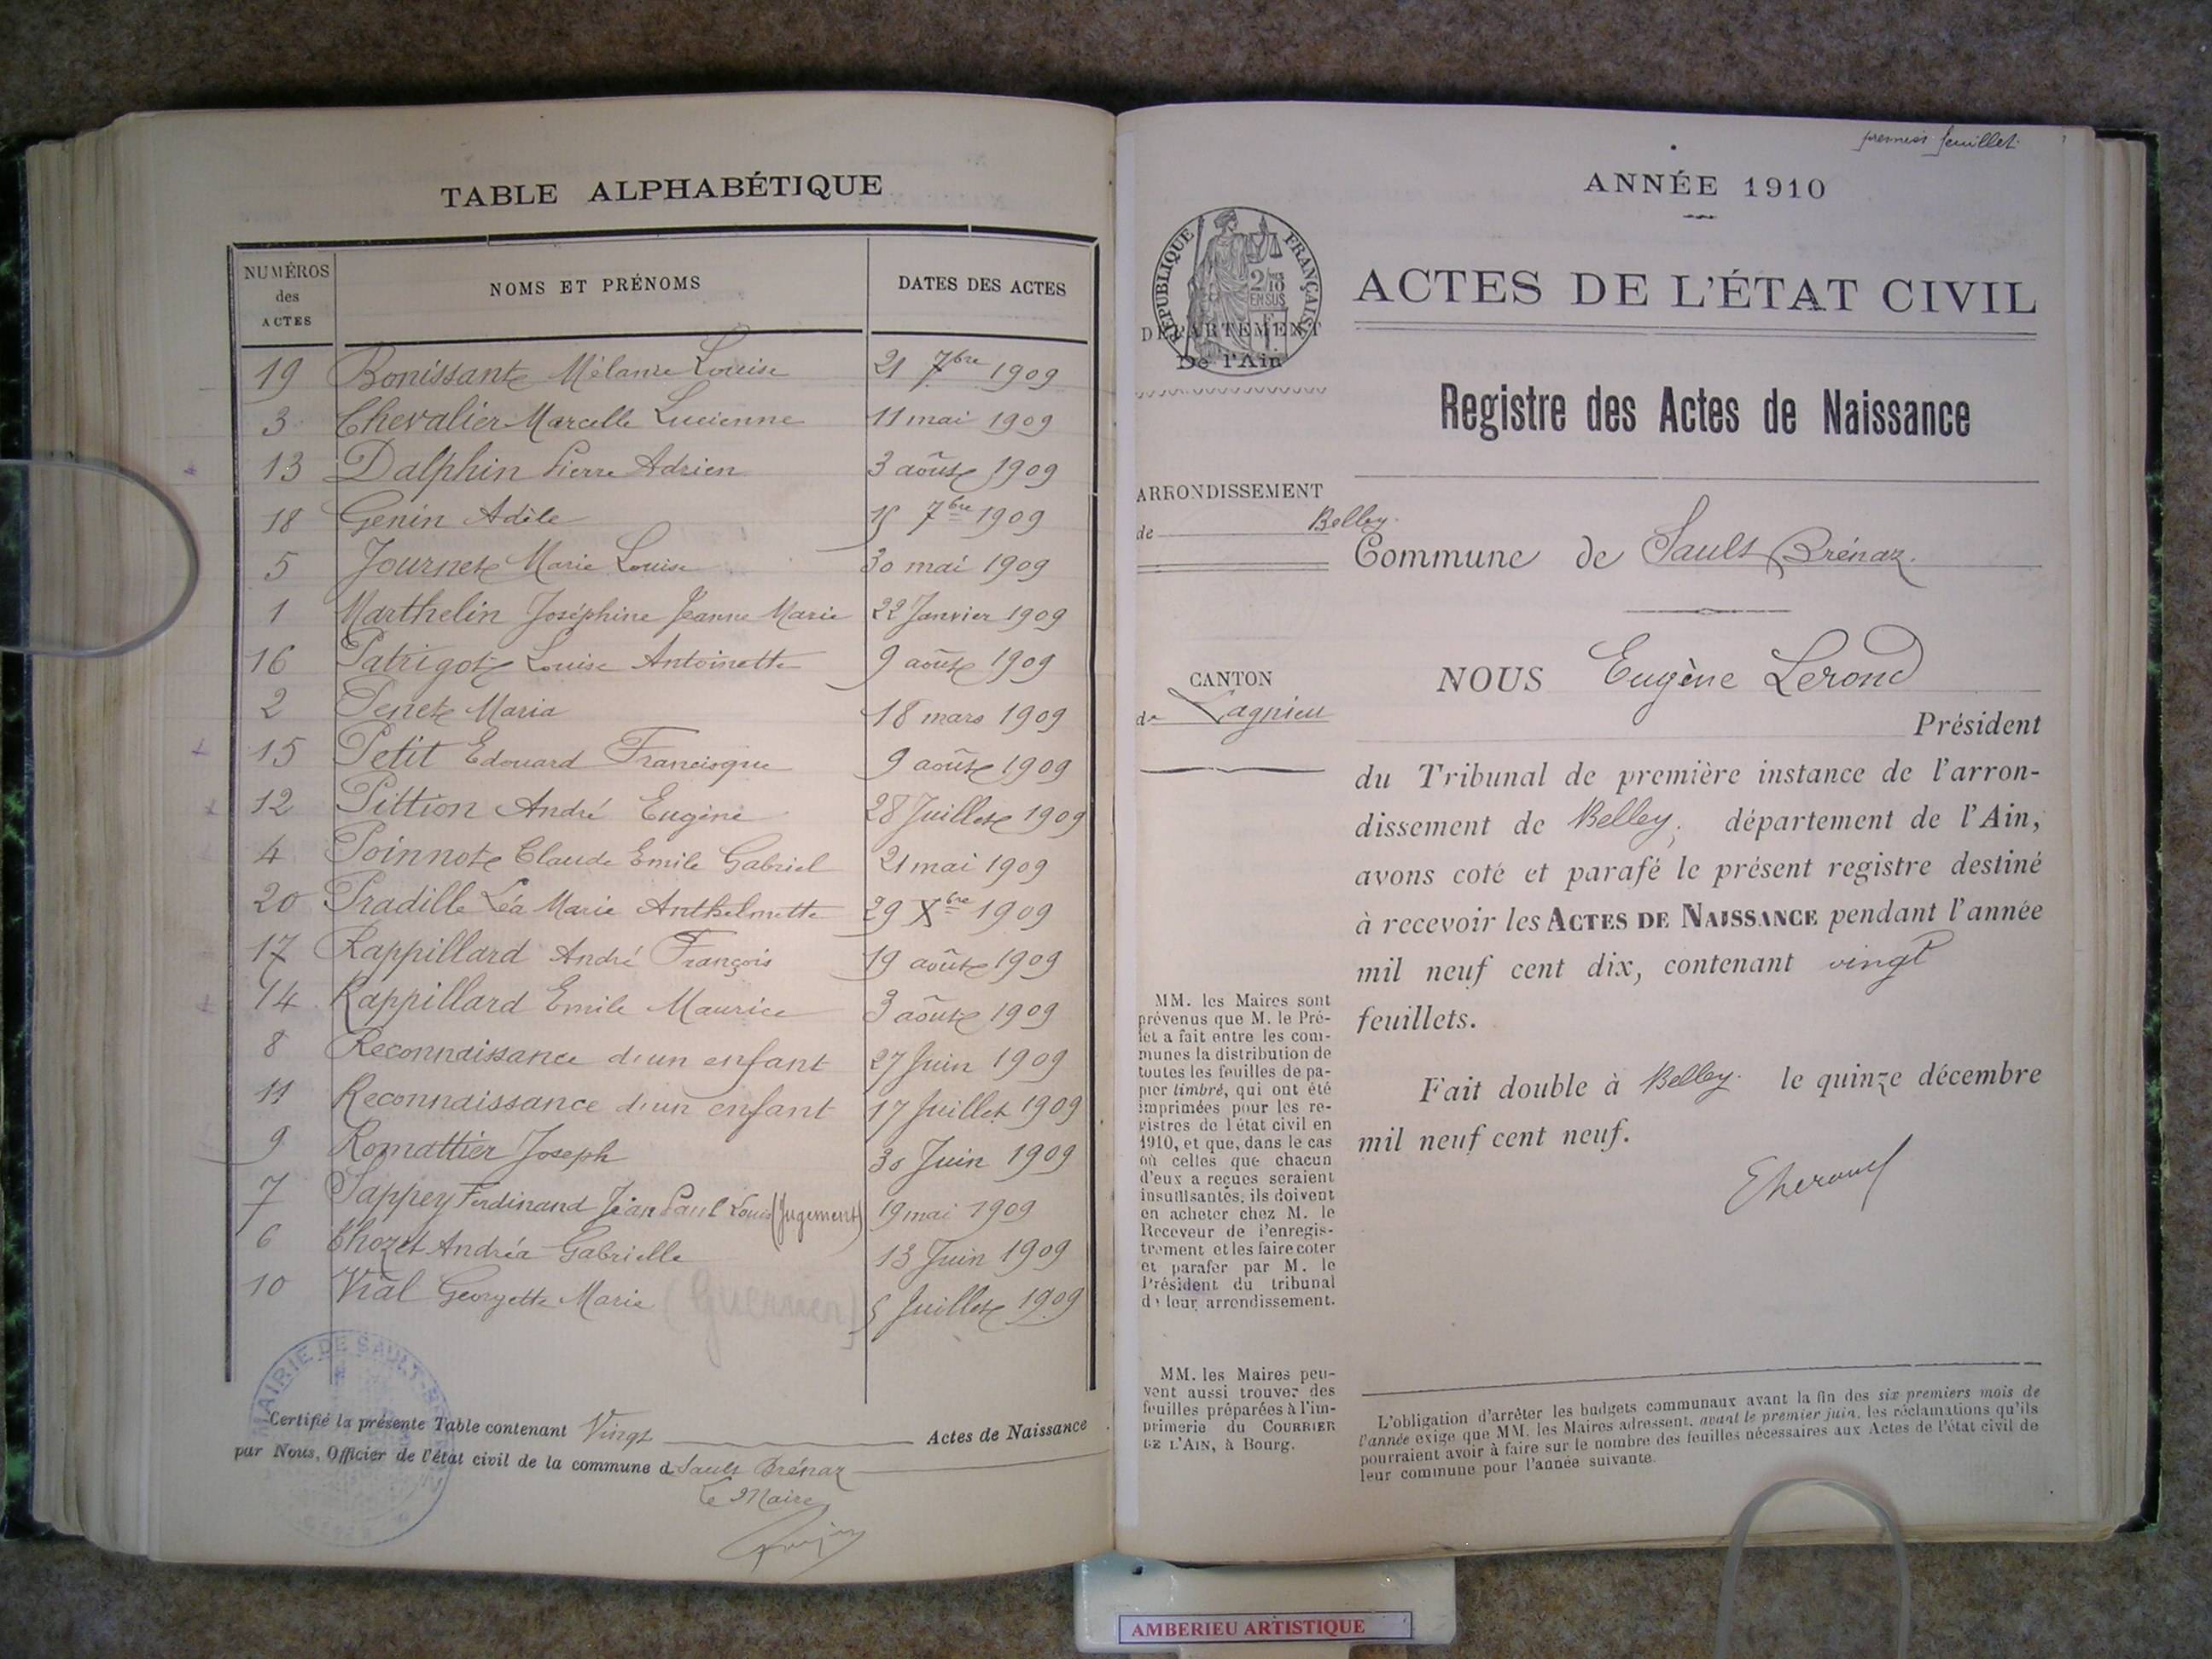 TABLE ALPHABÉTIQUE
NUMÉROS des ACTES NOMS ET PRÉNOMS DATES DES ACTES
19 Bonissant Mélanie Louise 21 7bre 1909
3 Chevalier Marcelle Lucienne 11 mai 1909
13 Dalphin Pierre Adrien 3 août 1909
18 Genin Adèle 15 7bre 1909
5 Journet Marie Louise 30 mai 1909
1 Marthelin Joséphine Jeanne Marie 22 Janvier 1909
16 Patrigot Louise Antoinette 9 août 1909
2 Penet Maria 18 mars 1909
15 Petit Edouard Francisque 9 août 1909
12 Pittion André Eugène 28 Juillet 1909
4 Poinnot Claude Emile Gabriel 21 mai 1909
20 Pradille Léa Marie Anthelmette 29 Xbre 1909
17 Rappillard André François 19 août 1909
14 Rappillard Emile Maurice 3 août 1909
8 Reconnaissance d'un enfant 27 Juin 1909
11 Reconnaissance d'un enfant 17 Juillet 1909
9 Romattier Joseph 30 Juin 1909
7 Sappey Ferdinand Jean Paul Louis (Jugement) 19 mai 1909
6 Thozet Andréa Gabrielle 13 Juin 1909
10 Vial Georgette Marie 5 Juillet 1909
MAIRIE DE SAULT-B
Certifié la présente Table contenant Vingt Actes de Naissance
par Nous, Officier de l'état civil de la commune d Sault Brénaz
Le Maire
premier feuillet
ANNÉE 1910
RÉPUBLIQUE FRANÇAISE
2/10
EN SUS
DÉPARTEMENT
De l'Ain
ACTES DE L'ÉTAT CIVIL
Registre des Actes de Naissance
ARRONDISSEMENT
de Belley
Commune de Sault Brénaz
CANTON
de Lagnieu
NOUS Eugène Lerond
Président
du Tribunal de première instance de l'arron-
dissement de Belley, département de l'Ain,
avons coté et parafé le présent registre destiné
à recevoir les ACTES DE NAISSANCE pendant l'année
mil neuf cent dix, contenant vingt
feuillets.
Fait double à Belley le quinze décembre
mil neuf cent neuf.
MM. les Maires sont
prévenus que M. le Pré-
fet a fait entre les com-
munes la distribution de
toutes les feuilles de pa-
pier timbré, qui ont été
imprimées pour les re-
gistres de l'état civil en
1910, et que, dans le cas
où celles que chacun
d'eux a reçues seraient
insuffisantes, ils doivent
en acheter chez M. le
Receveur de l'enregis-
trement et les faire coter
et parafer par M. le
Président du tribunal
de leur arrondissement.
MM. les Maires peu-
vent aussi trouver des
feuilles préparées à l'im-
primerie du COURRIER
DE L'AIN, à Bourg.
L'obligation d'arrêter les budgets communaux avant la fin des six premiers mois de
l'année exige que MM. les Maires adressent, avant le premier juin, les réclamations qu'ils
pourraient avoir à faire sur le nombre des feuilles nécessaires aux Actes de l'état civil de
leur commune pour l'année suivante.
AMBERIEU ARTISTIQUE